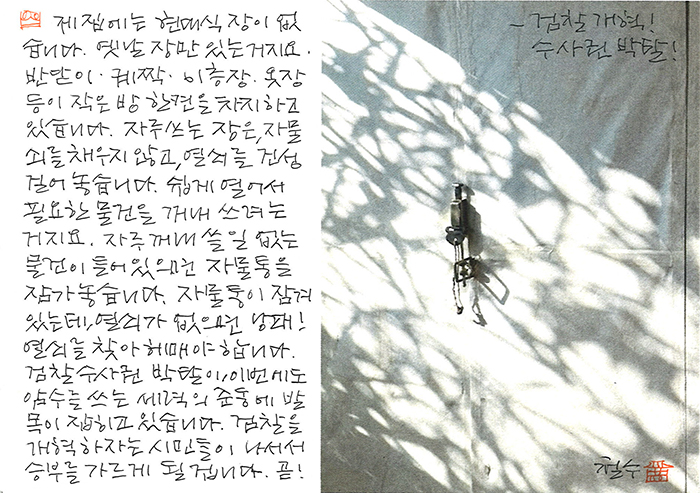 제 집에는 현대식 장이 없
습니다. 옛날 장만 있는거지요.
반닫이·궤짝·이층장·옷장
등이 작은 방 한편을 차지하고
있습니다. 자주쓰는 장은, 자물
쇠를 채우지 않고, 열쇠를 건성
걸어 놓습니다. 쉽게 열어서
필요한 물건을 꺼내 쓰려는
거지요. 자주 꺼내 쓸 일 없는
물건이 들어있으면 자물통을
잠가 놓습니다. 자물통이 잠겨
있는데, 열쇠가 없으면 낭패!
열쇠를 찾아 헤매야 합니다.
검찰 수사권 박탈이, 이번에도
암수를 쓰는 세력의 준동에 발
목이 잡히고 있습니다. 검찰을
개혁하자는 시민들이 나서서
승부를 가르게 될 겁니다. 곧!
-검찰개혁!
수사권 박탈!
철수